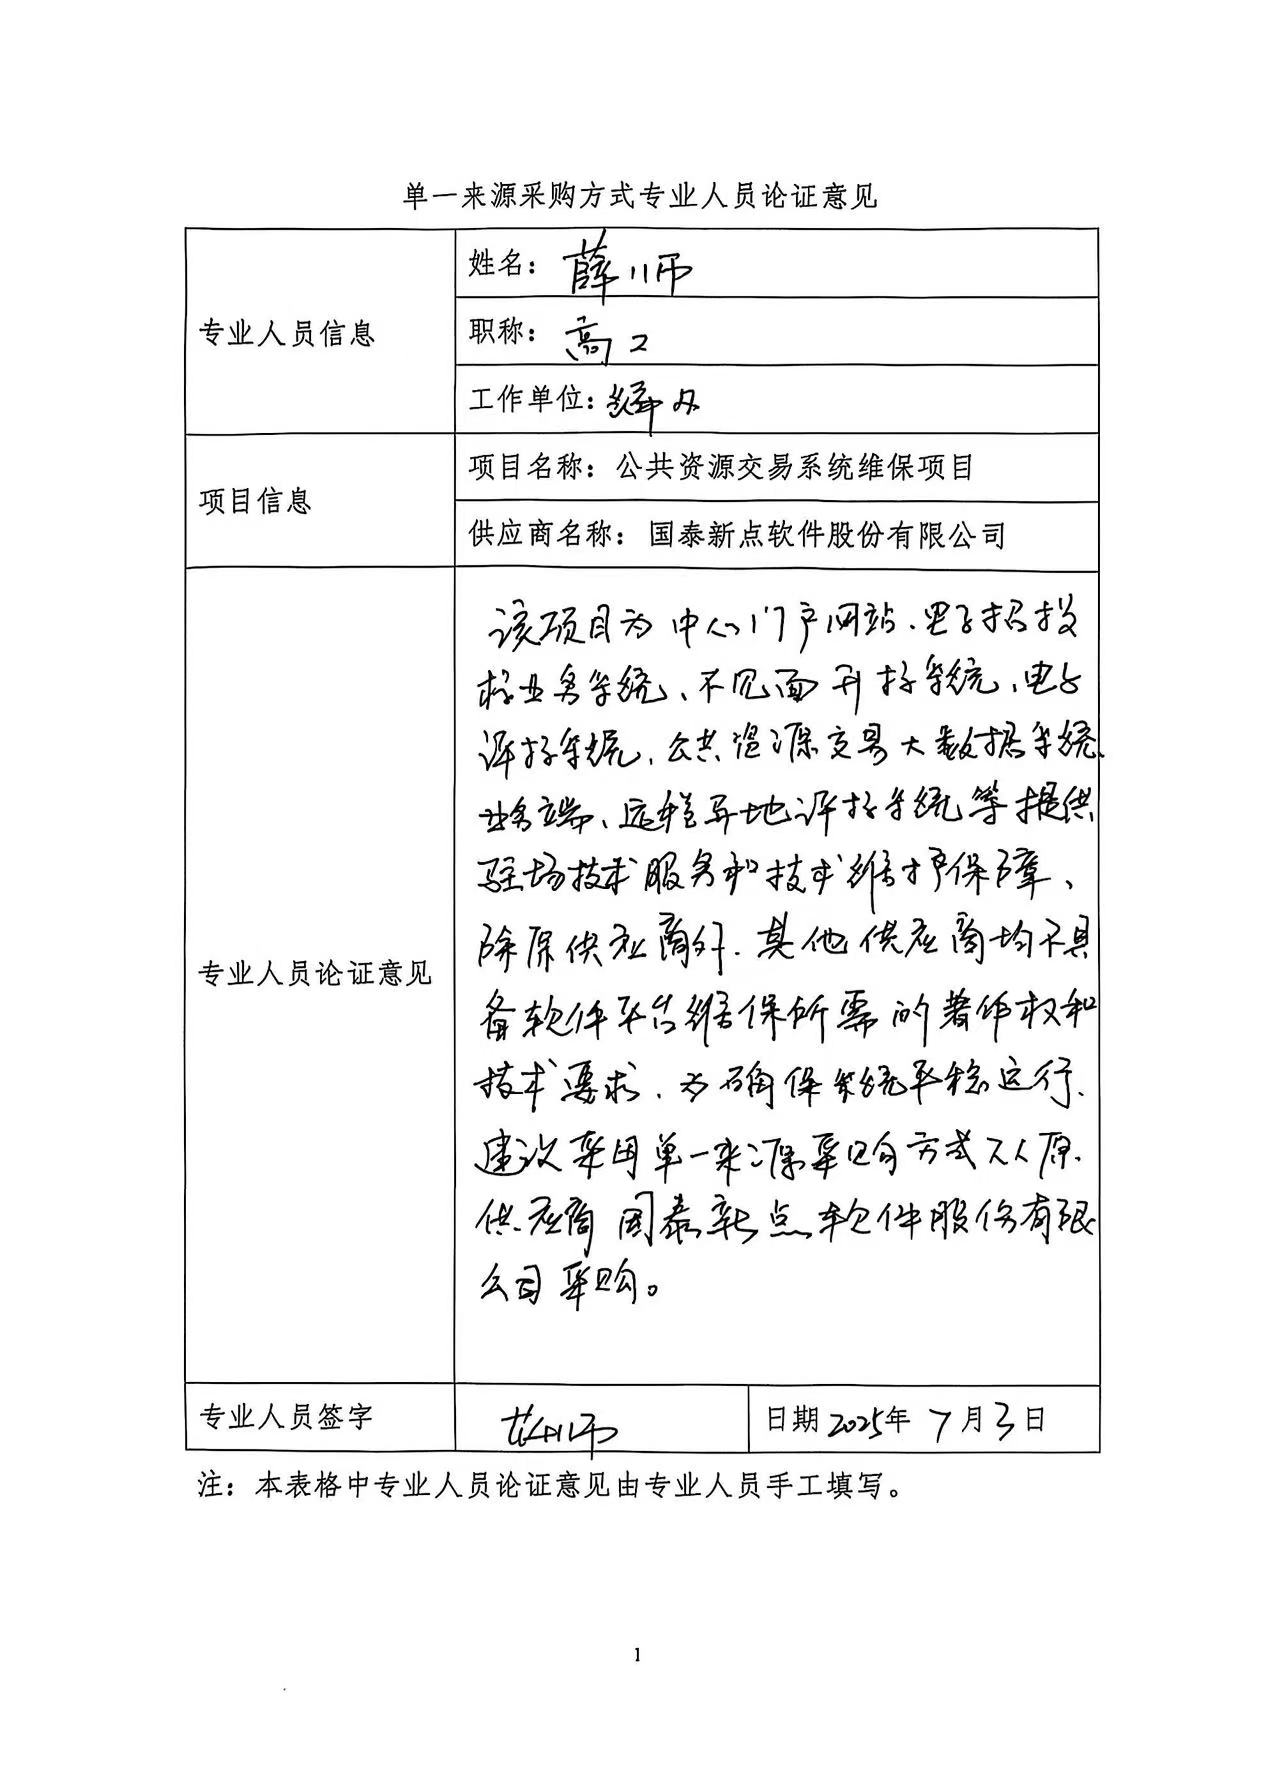 单一来源采购方式专业人员论证意见
专业人员信息
姓名：薛川师
职称：高工
工作单位：
项目信息
项目名称：公共资源交易系统维保项目
供应商名称：国泰新点软件股份有限公司
专业人员论证意见
该项目为中心门户网站、电子招投
标业务系统、不见面开标系统、电子
评标系统、公共资源交易大数据系统、
业务端、远程异地评标系统等提供
驻场技术服务和技术维护保障、
除原供应商外、其他供应商均不具
备软件平台维保所需的著作权和
技术要求、为确保系统平稳运行、
建议采用单一来源采购方式从原
供应商国泰新点软件股份有限
公司采购。
专业人员签字
薛川师
日期 2025年 7月3日
注：本表格中专业人员论证意见由专业人员手工填写。
1